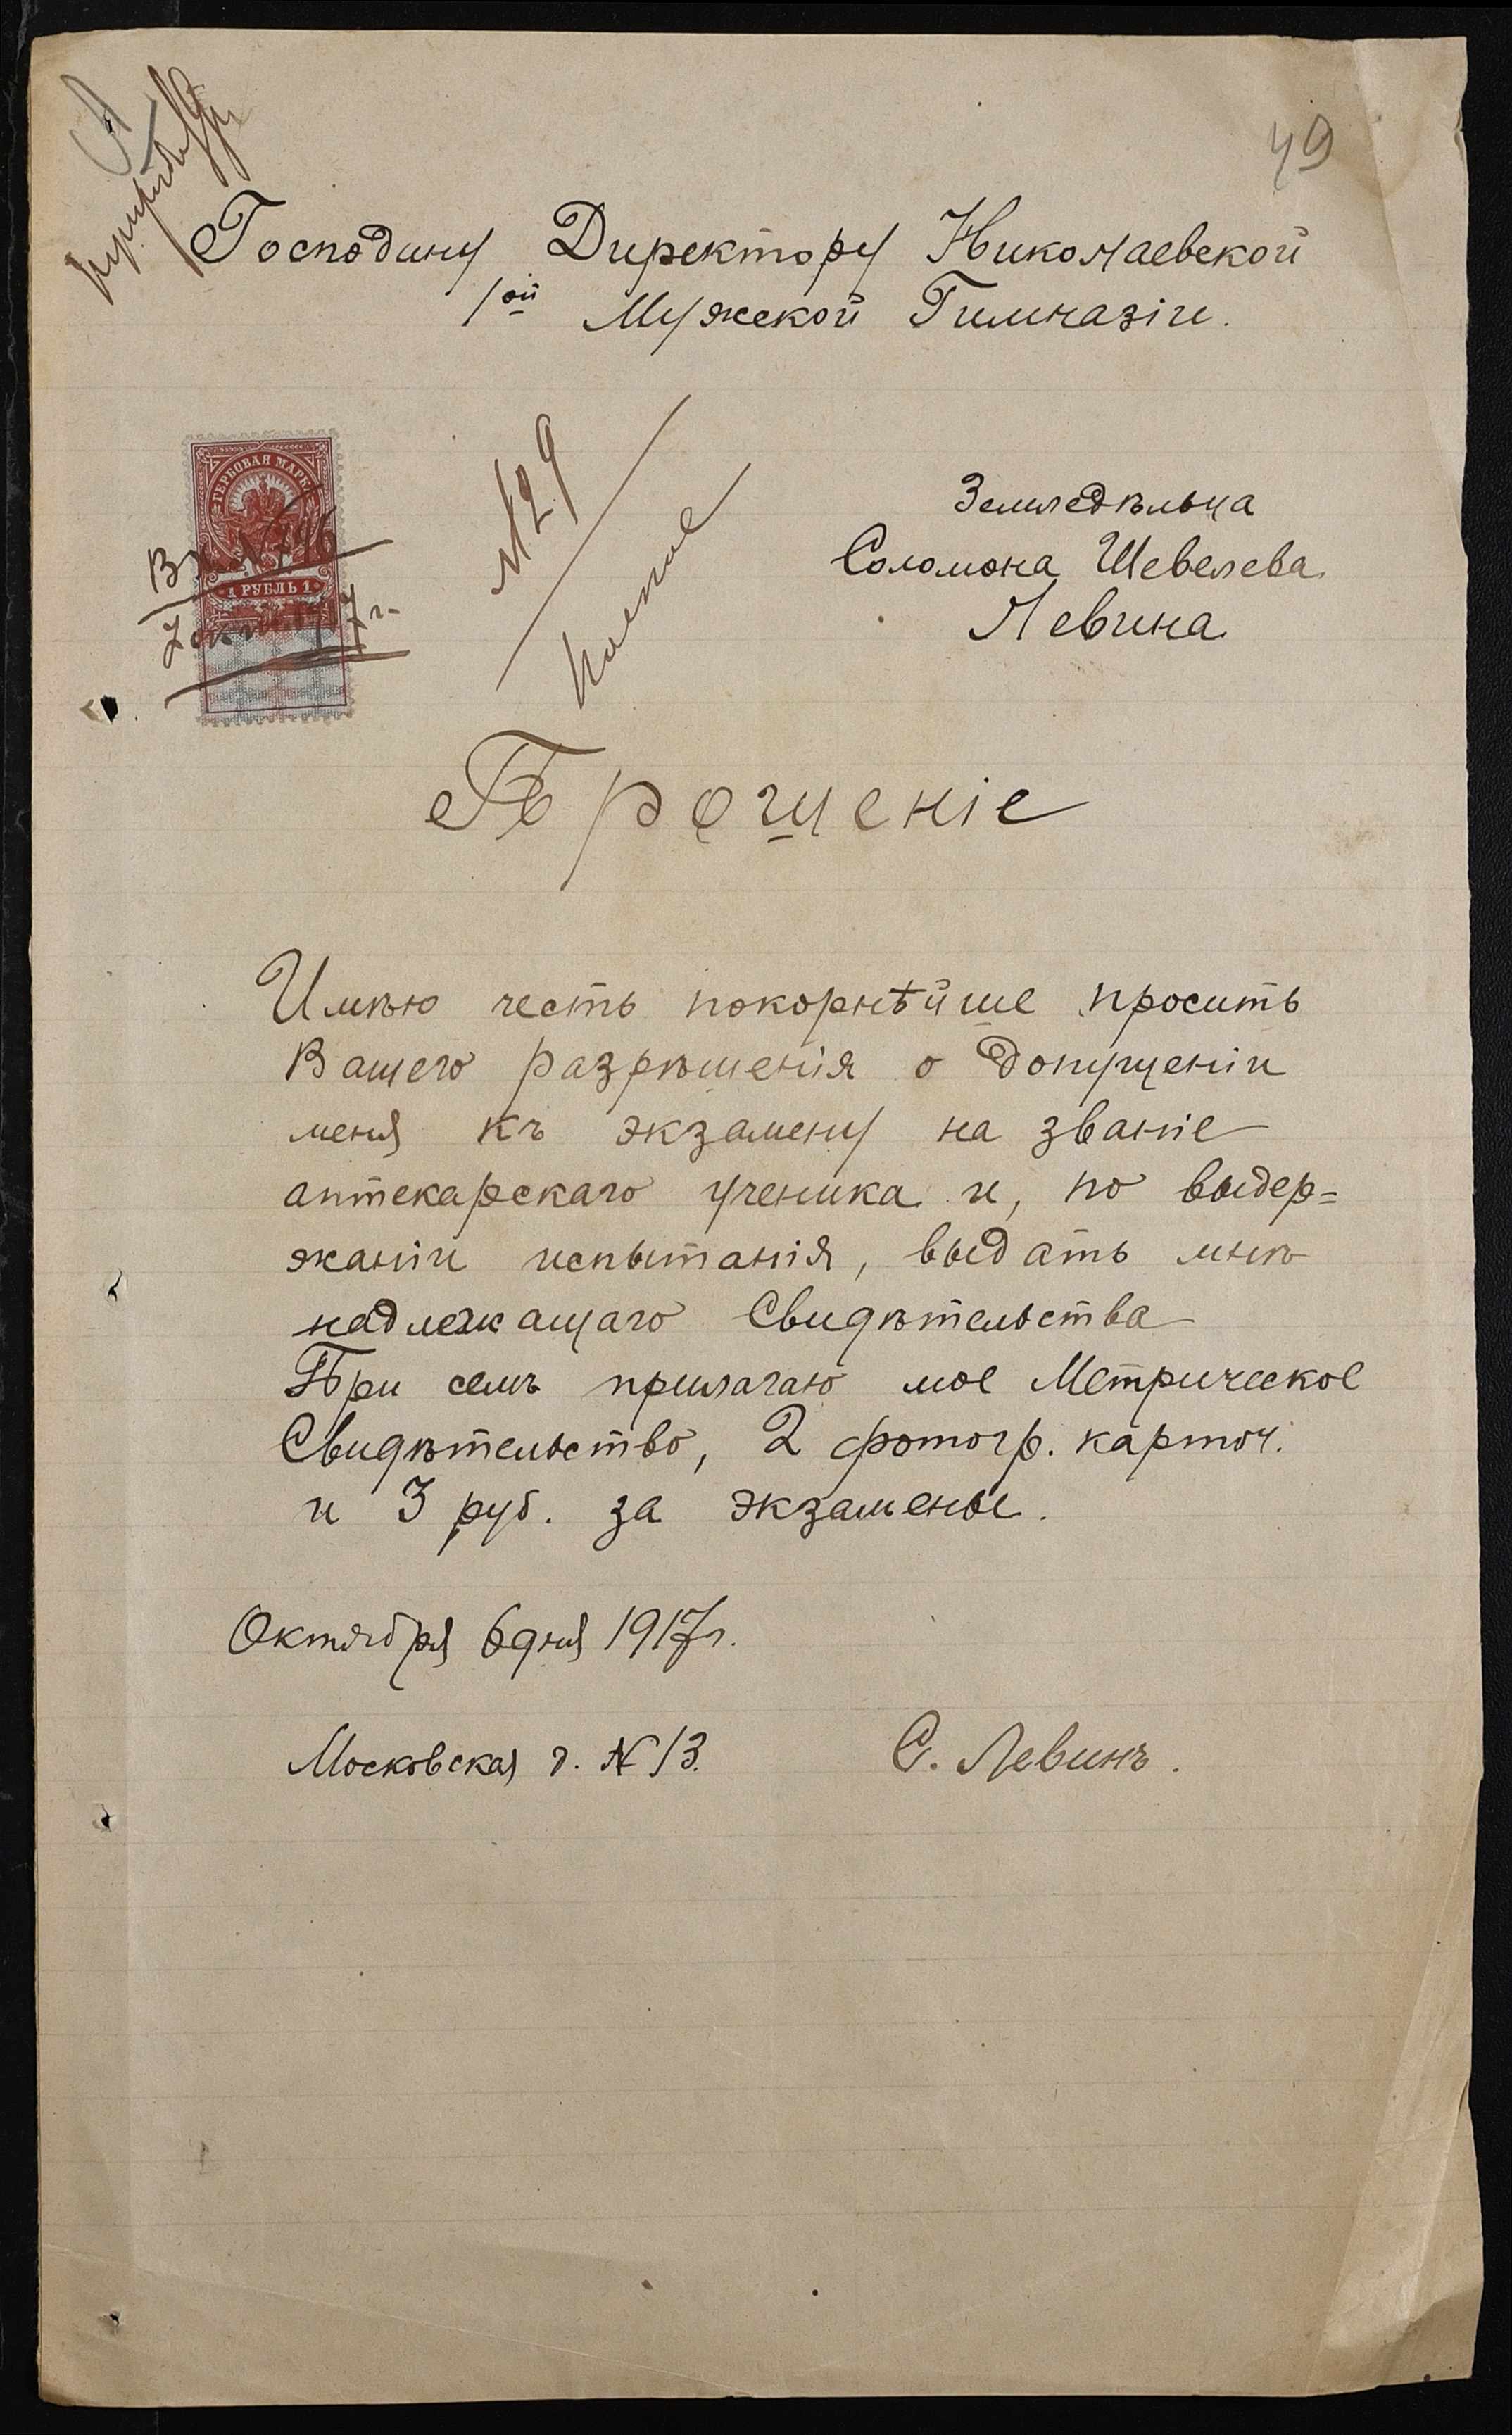 49
Господину Директору Николаевской
1ой Мужской Гимназіи.
ГЕРБОВАЯ МАРКА
1 РУБЛЬ 1
№ 29
Земледѣльца
Соломона Шевелева
Левина
Прошеніе
Имѣю честь покорнѣйше просить
Вашего разрѣшенія о допущеніи
меня къ экзамену на званіе
аптекарскаго ученика и, по выдер=
жаніи испытанія, выдать мнѣ
надлежащаго Свидѣтельства
При семъ прилагаю мое Метрическое
Свидѣтельство, 2 фотогр. карточ.
и 3 руб. за экзамены.
Октября 6 дня 1917 г.
Московская д. № 13.
С. Левинъ.